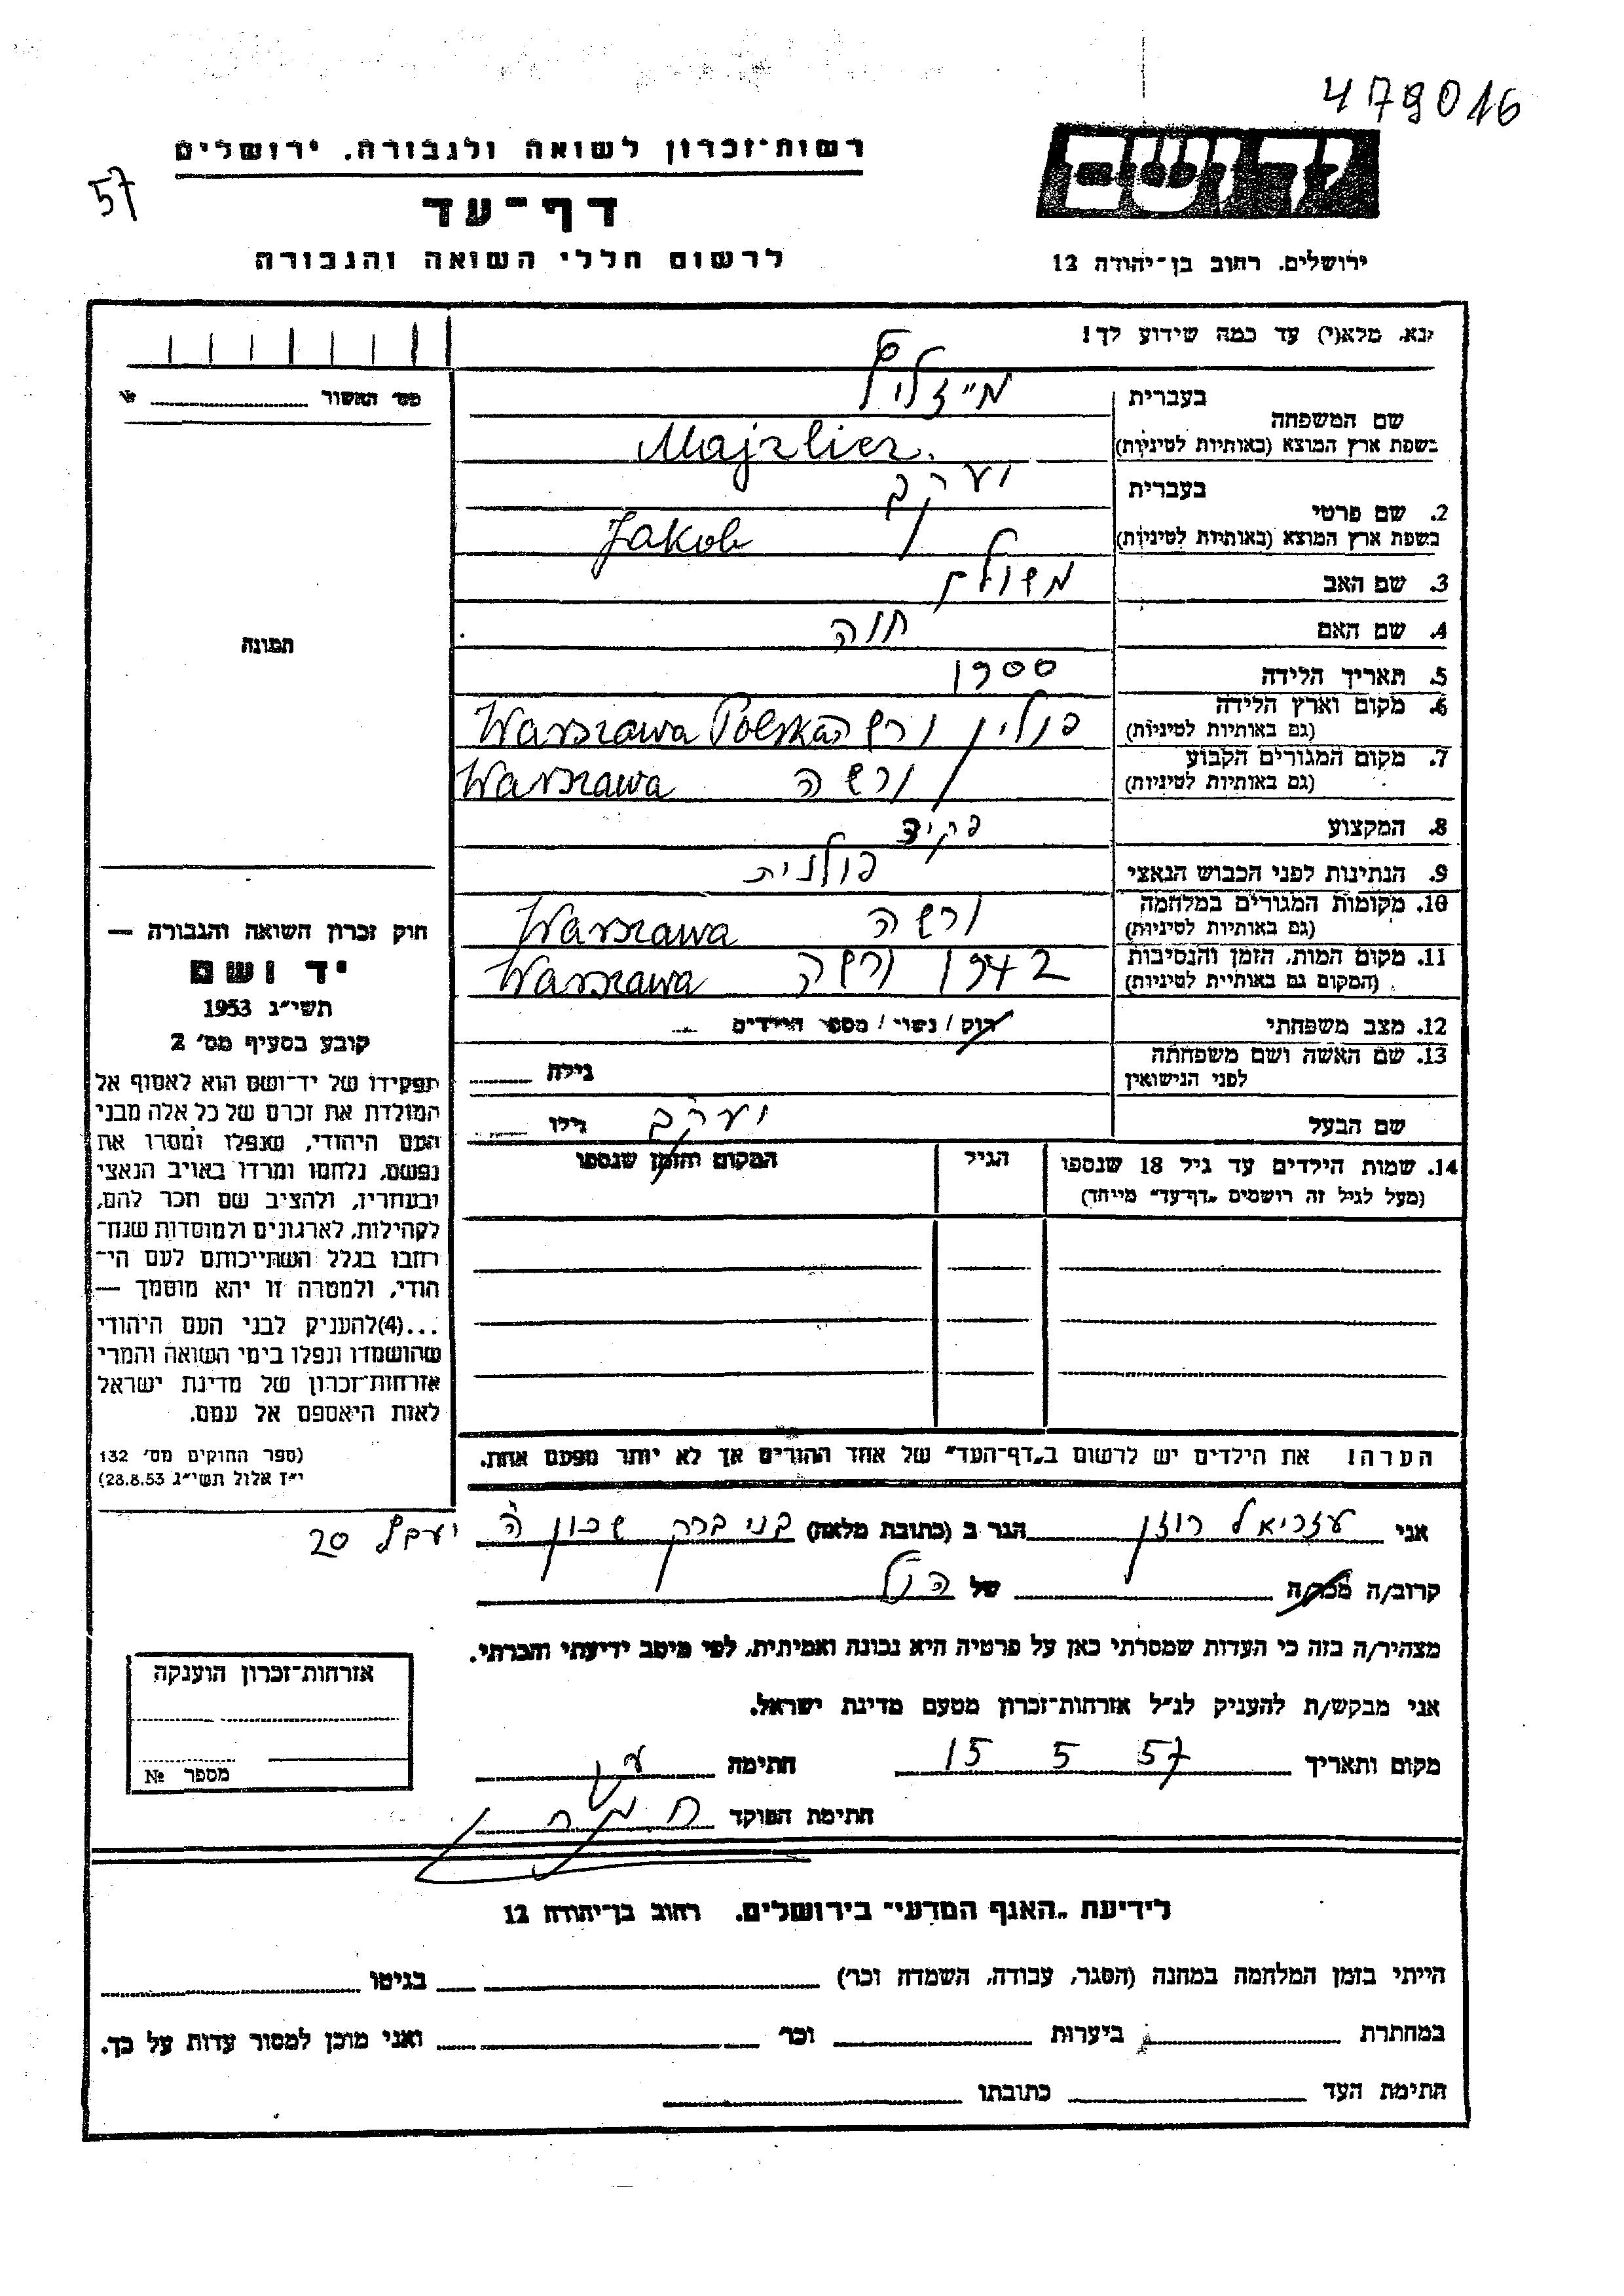 479016
רשות־זכרון לשואה ולגבורה. ירושלים
57
דף־עד
לרשום חללי השואה והגבורה
יד ושם
ירושלים. רחוב בן־יהודה 12
נא. מלא(י) עד כמה שידוע לך!
מס׳ האשור
№
שם המשפחה
בעברית
בשפת ארץ המוצא (באותיות לטיניות)
Majzlier
2. שם פרטי
בעברית יעקב
בשפת ארץ המוצא (באותיות לטיניות) Jakob
3. שם האב משולם
4. שם האם חוה
5. תאריך הלידה 1900
6. מקום וארץ הלידה (גם באותיות לטיניות) פולין ורשה Warszawa Polska
7. מקום המגורים הקבוע (גם באותיות לטיניות) ורשה Warszawa
8. המקצוע פקיד
9. הנתינות לפני הכבוש הנאצי פולנית
10. מקומות המגורים במלחמה (גם באותיות לטיניות) ורשה Warszawa
11. מקום המות. הזמן והנסיבות (המקום גם באותיות לטיניות) 1942 ורשה Warszawa
12. מצב משפחתי רוק / נשוי / מספר הילדים
13. שם האשה ושם משפחתה לפני הנישואין גילה
שם הבעל יעקב גילו
14. שמות הילדים עד גיל 18 שנספו
(מעל לגיל זה רושמים „דף־עד״ מייחד)
הגיל
המקום והזמן שנספו
תמונה
חוק זכרון השואה והגבורה —
יד ושם
תשי״ג 1953
קובע בסעיף מס׳ 2
תפקידו של יד־ושם הוא לאסוף אל
המולדת את זכרם של כל אלה מבני
העם היהודי, שנפלו ומסרו את
נפשם, נלחמו ומרדו באויב הנאצי
ובעוזריו, ולהציב שם וזכר להם,
לקהילות, לארגונים ולמוסדות שנח־
רחבו בגלל השתייכותם לעם הי־
הודי, ולמטרה זו יהא מוסמך —
...(4)להעניק לבני העם היהודי
שהושמדו ונפלו בימי השואה והמרי
אזרחות־זכרון של מדינת ישראל
לאות היאספם אל עמם.
(ספר החוקים מס׳ 132
י״ז אלול תשי״ג 28.8.53)
הערה! את הילדים יש לרשום ב„דף־העד״ של אחד ההורים אך לא יותר מפעם אחת.
אני עזריאל רוזן הגר ב (כתובת מלאה) בני ברק שכון ה׳ 20
קרוב/ה מכר/ה של הנ״ל
מצהיר/ה בזה כי העדות שמסרתי כאן על פרטיה היא נכונה ואמיתית, לפי מיטב ידיעתי והכרתי.
אני מבקש/ת להעניק לנ״ל אזרחות־זכרון מטעם מדינת ישראל.
מקום ותאריך 15 5 57 חתימה
חתימת הפוקד
אזרחות־זכרון הוענקה
מספר №
לידיעת „האגף המדעי״ בירושלים. רחוב בן־יהודה 12
הייתי בזמן המלחמה במחנה (הסגר, עבודה, השמדה וכר׳) בגיטו
במחתרת ביערות וכר׳ ואני מוכן למסור עדות על כך.
חתימת העד כתובתו